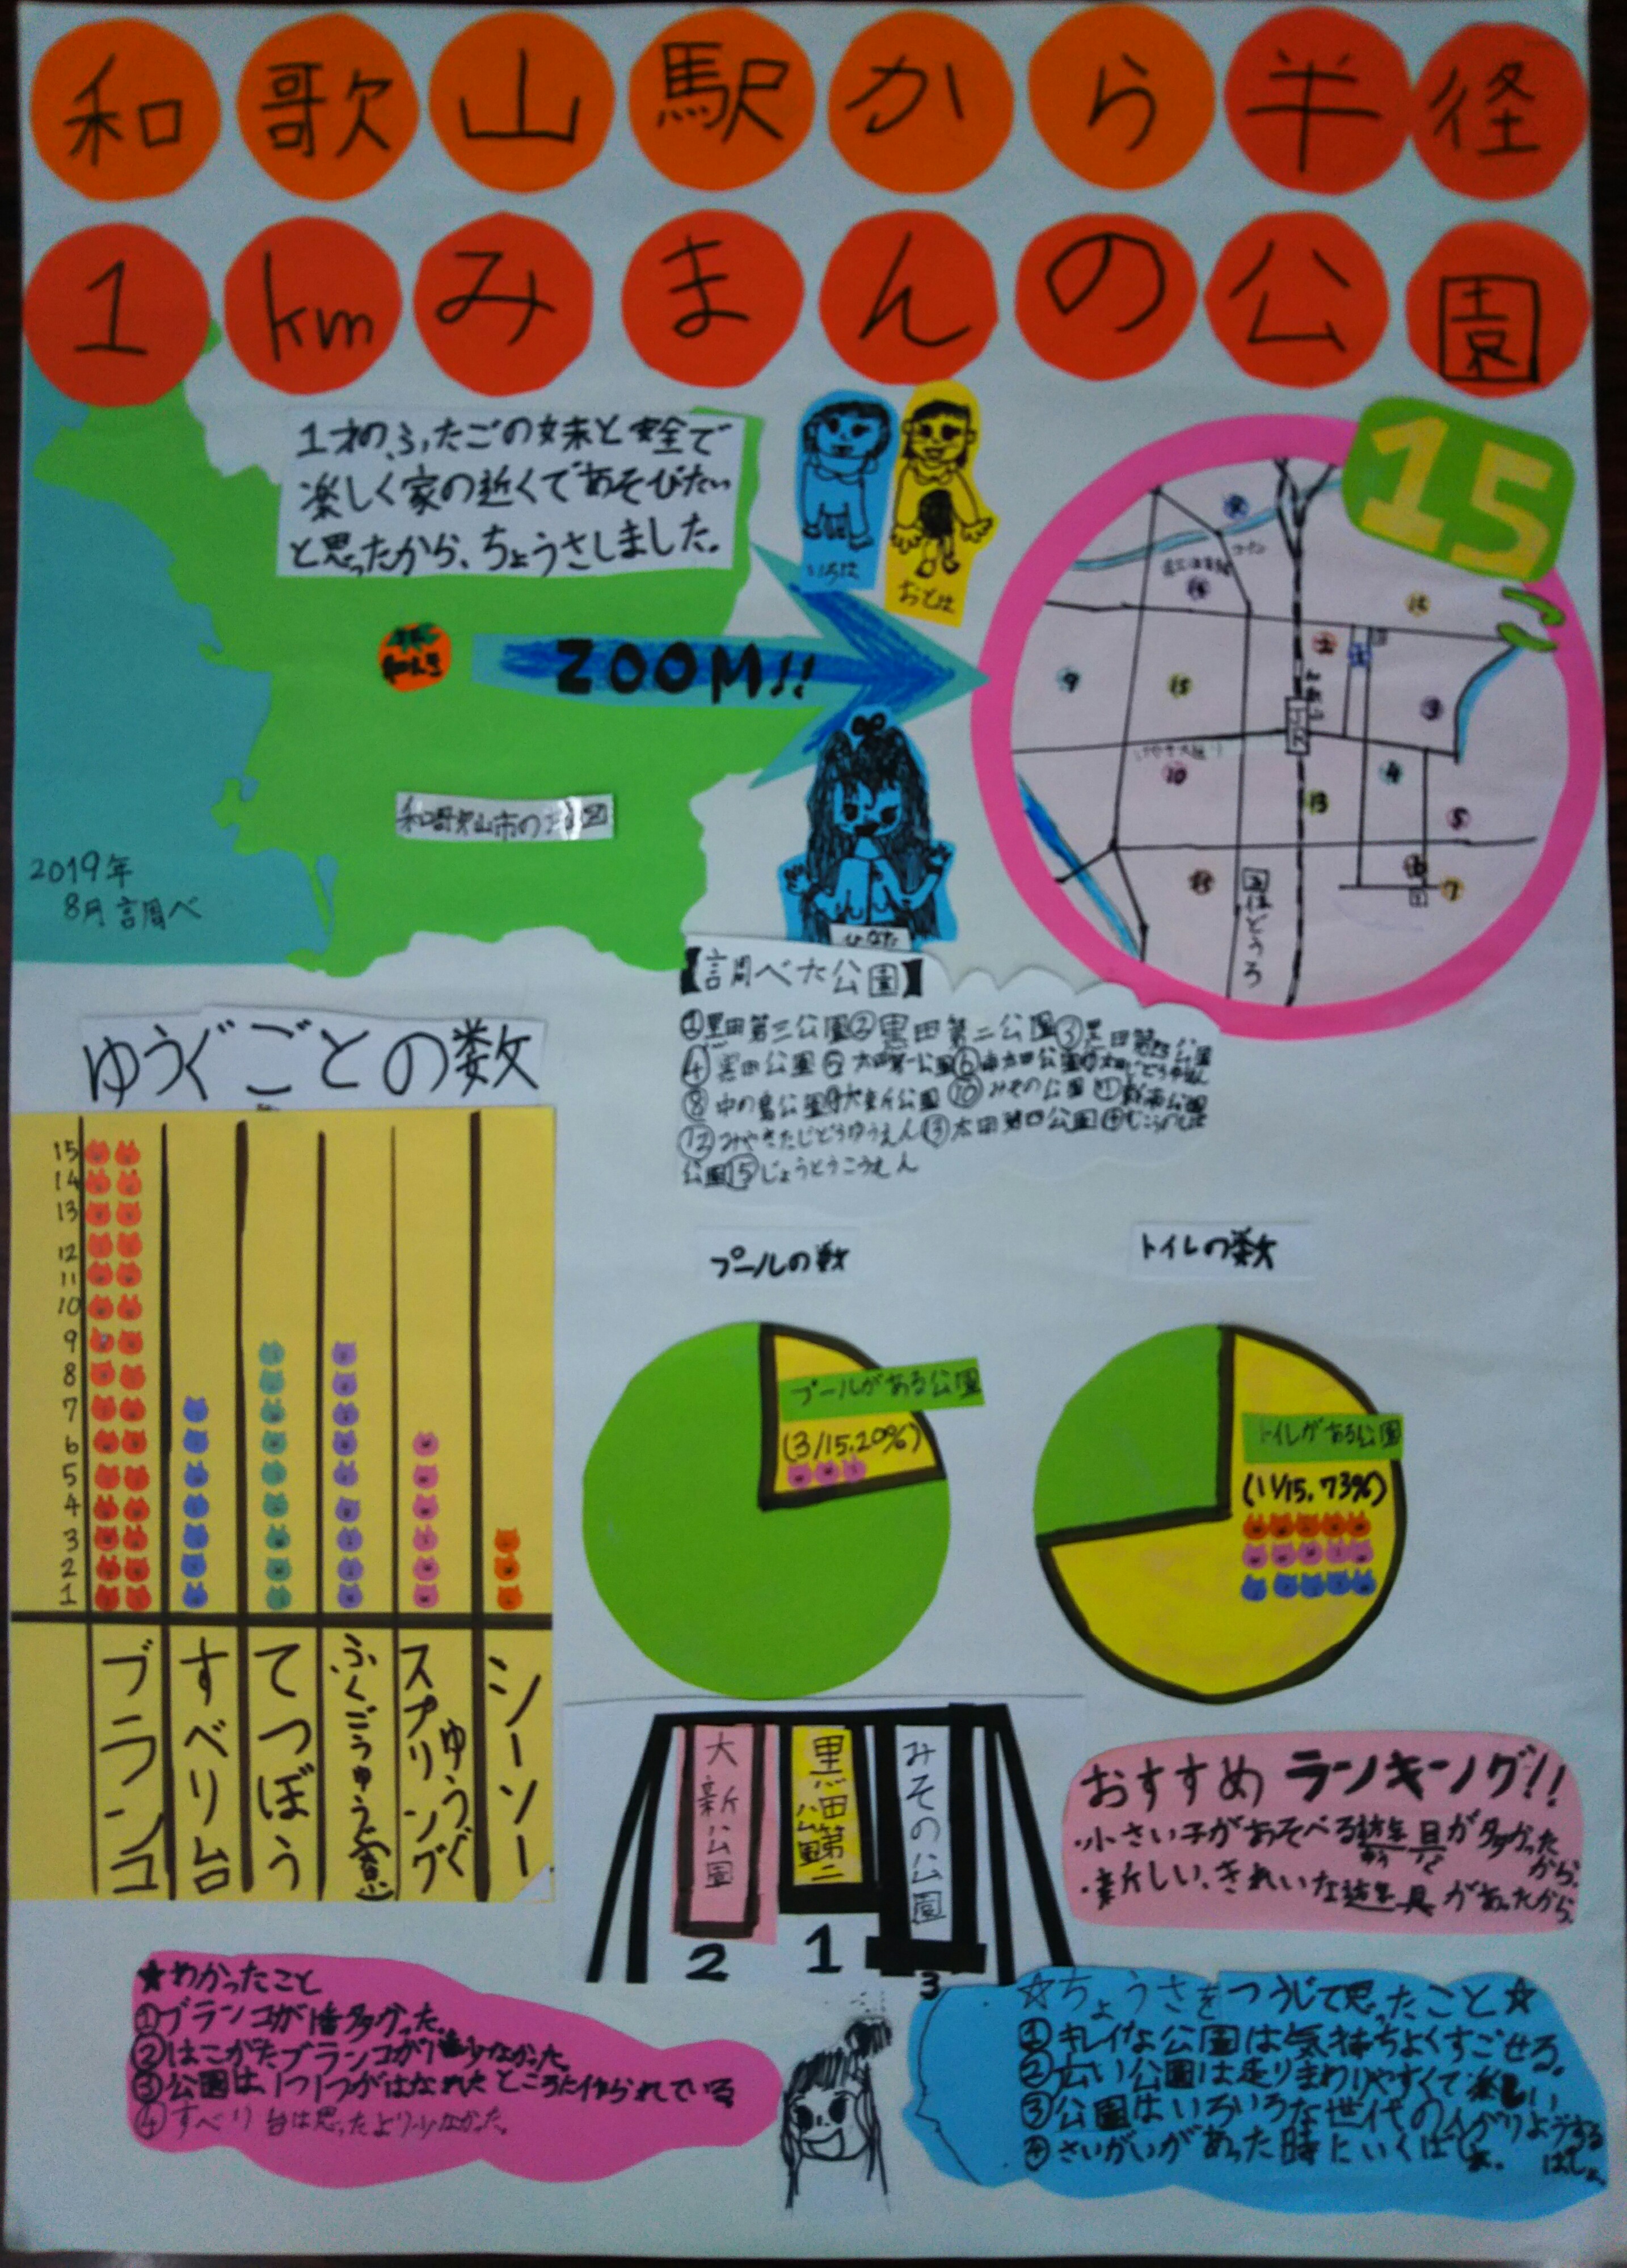 和歌山駅から半径
1kmみまんの公園
1才のふたごの妹と安全で
楽しく家の近くであそびたい
と思ったから、ちょうさしました。
いろは
おとは
15
ZOOM!!
和歌山市の地図
2019年
8月調べ
ひなた
けやき大通り
国体どうろ
【調べた公園】
①黒田第三公園②黒田第二公園③黒田第四公園
④黒田公園⑤太田第一公園⑥南太田公園
⑧中の島公園⑨大新公園⑩みその公園⑪新南公園
⑫みやきたじどうゆうえん⑬太田第四公園⑭
公園⑮じょうとうこうえん
ゆうぐごとの数
15
14
13
12
11
10
9
8
7
6
5
4
3
2
1
ブランコ
すべり台
てつぼう
ふくごうゆうぐ
スプリングゆうぐ
シーソー
プールの数
プールがある公園
(3/15.20%)
トイレの数
トイレがある公園
(11/15.73%)
大新公園
黒田第二公園
みその公園
2
1
3
おすすめランキング!!
・小さい子があそべる遊具が多かったから。
・新しい、きれいな遊具があったから。
★わかったこと
①ブランコが1番多かった。
②はこがたブランコが1番少なかった。
③公園は、1つ1つがはなれたところに作られている
④すべり台は思ったより少なかった。
☆ちょうさをつうじて思ったこと☆
①キレイな公園は気持ちよくすごせる。
②広い公園は走りまわりやすくて楽しい
③公園はいろいろな世代の人がりようするばしょ。
④さいがいがあった時にいくばしょ。